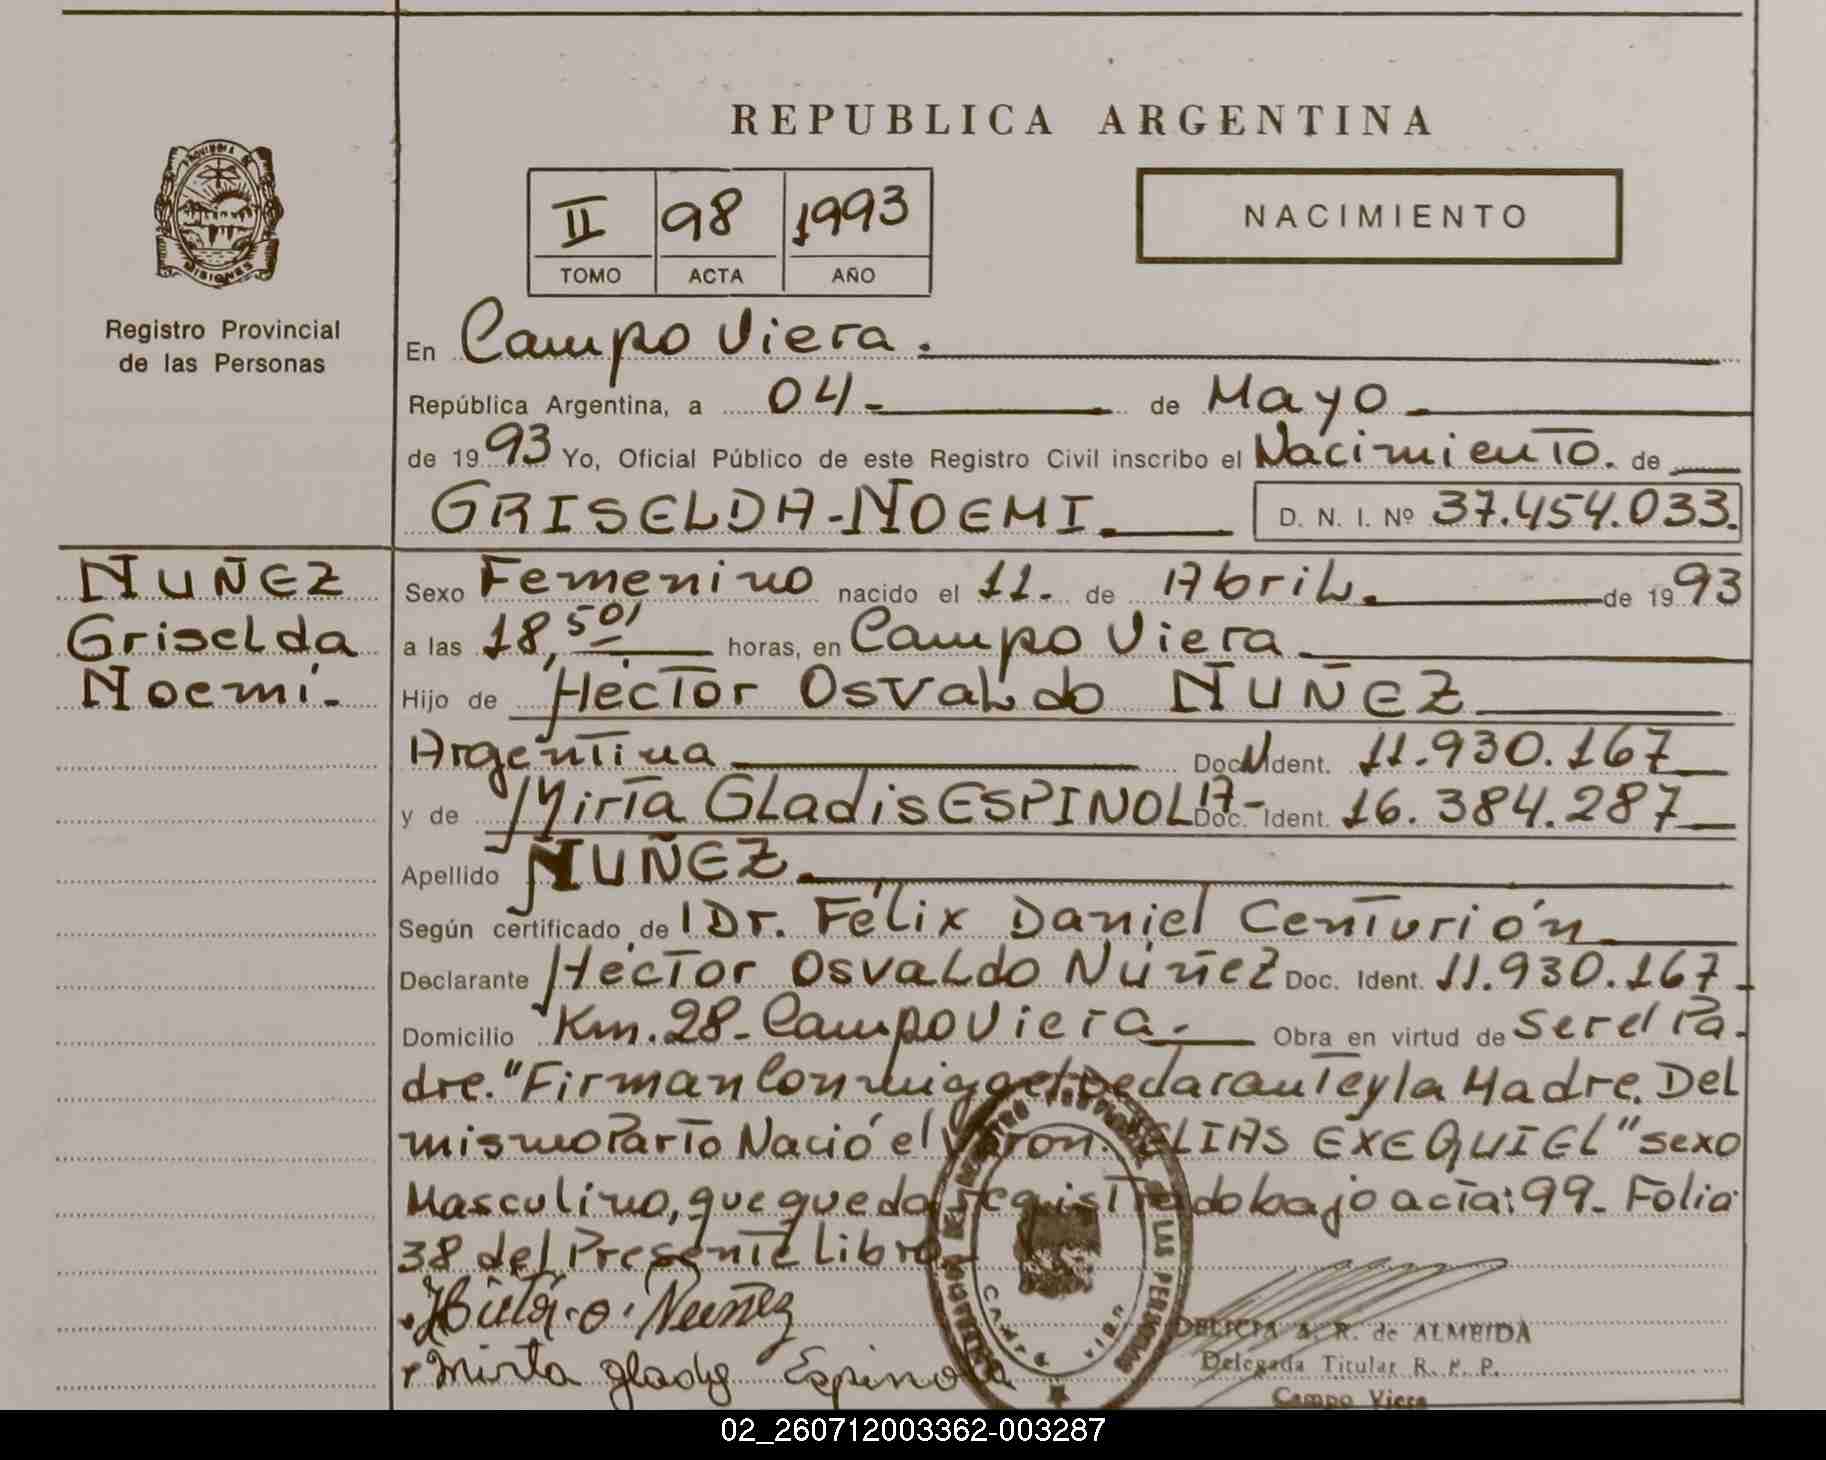 REPUBLICA ARGENTINA
PROVINCIA DE
MISIONES
Registro Provincial
de las Personas
II 98 1993
TOMO ACTA AÑO
NACIMIENTO
En Campo Viera.
República Argentina, a 04- de Mayo
de 1993 Yo, Oficial Público de este Registro Civil inscribo el Nacimiento. de
GRISELDA-NOEMI. D. N. I. Nº 37.454.033.
NUÑEZ
Griselda
Noemí.-
Sexo Femenino nacido el 11. de Abril. de 1993
a las 18,50' horas, en Campo Viera
Hijo de Héctor Osvaldo NUÑEZ
Argentina Doc. Ident. 11.930.167
y de Mirta Gladis ESPINOLA- Doc. Ident. 16.384.287
Apellido NUÑEZ.
Según certificado de Dr. Félix Daniel Centurión
Declarante Héctor Osvaldo Núñez Doc. Ident. 11.930.167-
Domicilio Km.28-Campo Viera.- Obra en virtud de ser el Pa-
dre."Firman Conmigo el Declarante y la Madre. Del
mismo Parto Nació el Varon. ELIAS EXEQUIEL" sexo
Masculino, que queda registrado bajo acta: 99- Folio
38 del Presente Libro-
Héctor O. Nuñez
Mirta glady Espinola
LAS PERSONAS
CAMPO VIERA
DELICIA A. R. de ALMEIDA
Delegada Titular R. P. P.
Campo Viera
02_260712003362-003287